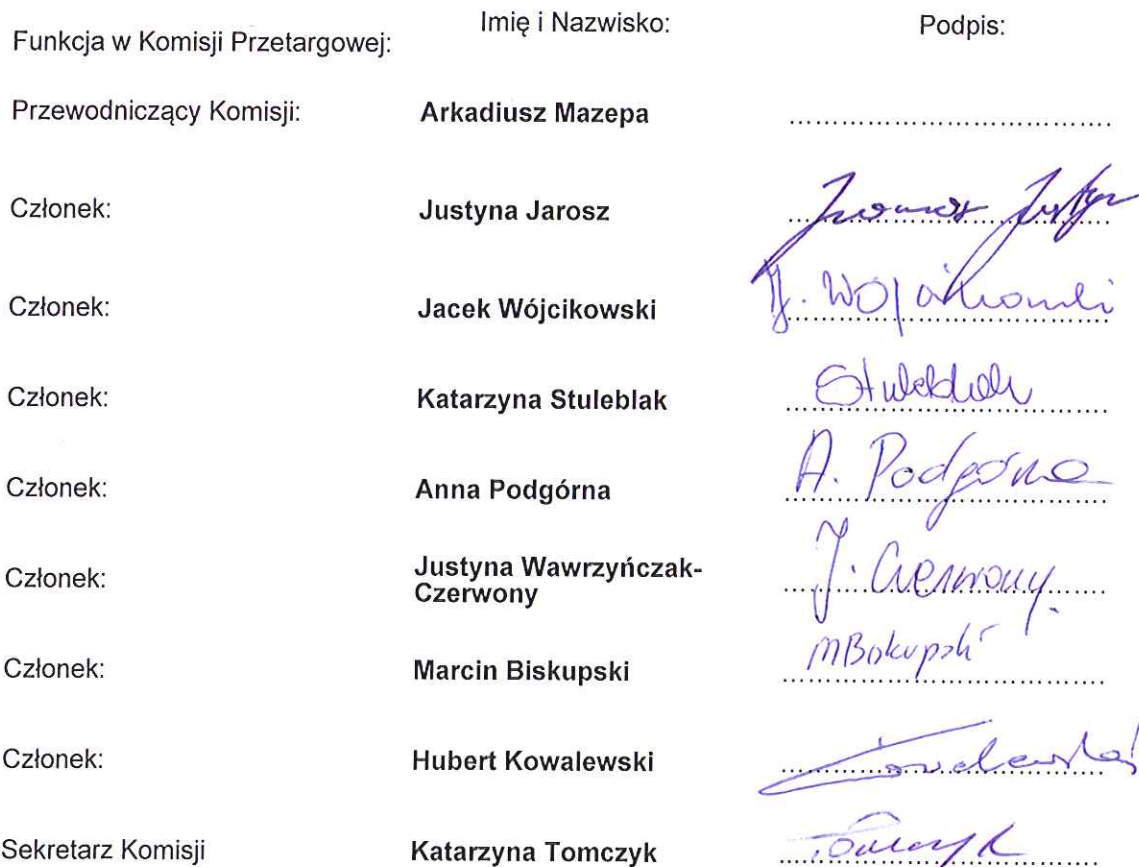 Funkcja w Komisji Przetargowej: Imię i Nazwisko: Podpis:
Przewodniczący Komisji: Arkadiusz Mazepa ....................................
Członek: Justyna Jarosz Jarosz Justyn
Członek: Jacek Wójcikowski J. Wójcikowski
Członek: Katarzyna Stuleblak Stuleblak
Członek: Anna Podgórna A. Podgórna
Członek: Justyna Wawrzyńczak- J. Czerwony
Czerwony
Członek: Marcin Biskupski MBiskupski
Członek: Hubert Kowalewski Kowalewski
Sekretarz Komisji Katarzyna Tomczyk Tomczyk